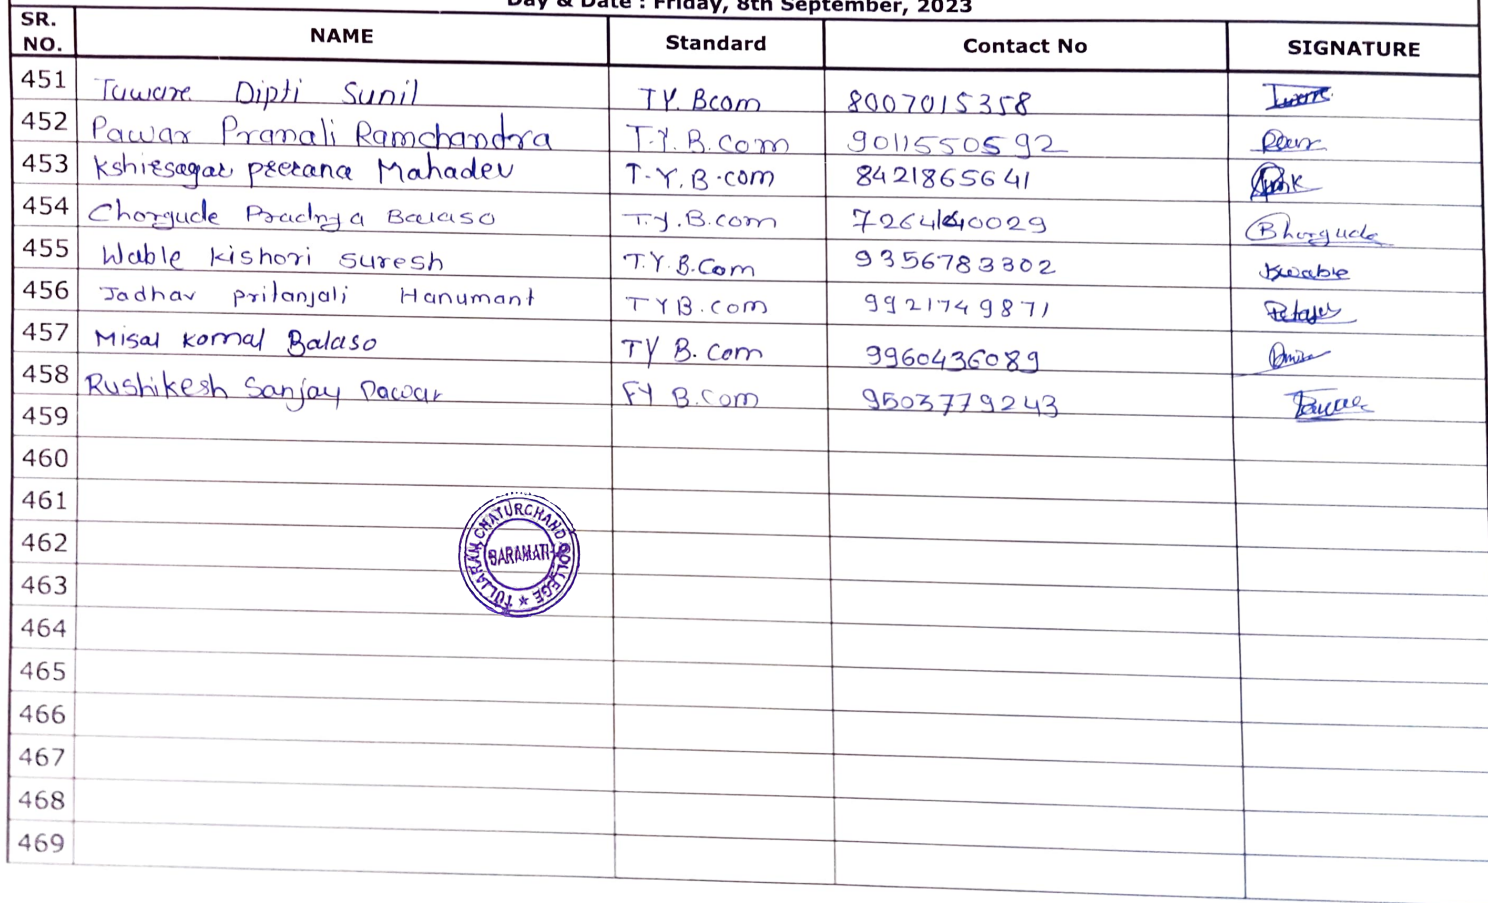 Day & Date : Friday, 8th September, 2023
SR. NO. NAME Standard Contact No SIGNATURE
451 Tuware Dipti Sunil TY. Bcom 8007015358
452 Pawar Pranali Ramchandra T.Y. B.Com 9011550592
453 Kshirsagar prerana Mahadev T.Y.B.com 8421865641
454 Chorgude Pradnya Balaso T.y.B.com 0029
455 Wable kishori suresh T.Y.B.Com 9356783302 kwable
456 Jadhav pritanjali Hanumant TYB.com 9921749871
457 Misal Komal Balaso TY B.Com 9960436089
458 Rushikesh Sanjay Pawar FY B.Com 9503779243
459
460
461
462
463
464
465
466
467
468
469
TULJARAM CHATURCHAND COLLEGE
BARAMATI